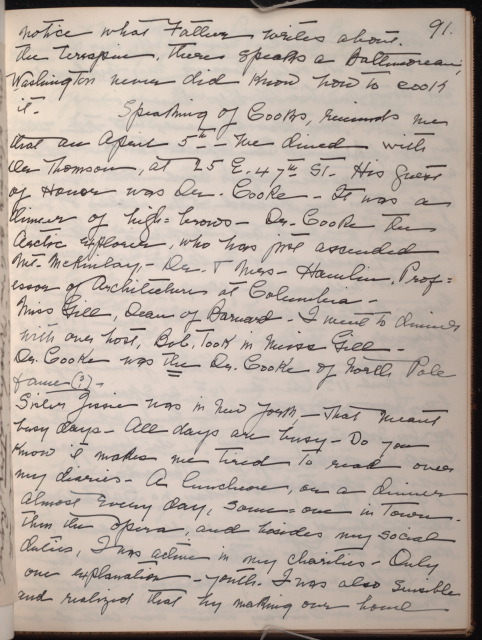 91.
notice what Father writes about.
the terrapin, there speaks a Baltimorean,
Washington never did know how to cook
it.
Speaking of Cooks, reminds me
that on April 5th - We dined with
Dr Thomson, at 25 E. 47th St. His Guest
of Honor was Dr. Cooke - It was a
dinner of high=brows - Dr. Cooke the
Arctic explorer, who has just ascended
Mt. McKinlay - Dr. & Mrs - Hamlin, Prof=
essor of Architecture at Columbia -
Miss Gill, Dean of Barnard - I went to dinner
with our host, Bob. took in Miss Gill -
Dr. Cooke was the Dr. Cooke of North Pole
fame (?) -
Sister Jessie was in New York, - That meant
busy days - All days are busy - Do you
know it makes me tired to read over
my diaries - A luncheon, or a dinner
almost every day, some=one in town -
then the opera, and besides my social
duties, I was active in my charities - Only
one explanation - youth. I was also sensible
and realized that by making our home